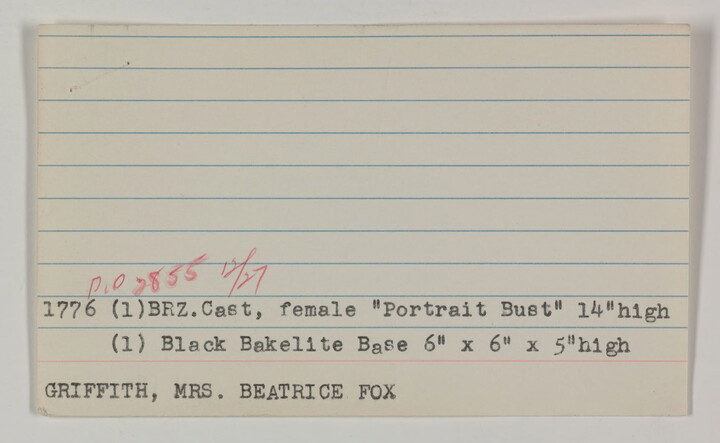 P.O 2855 12/27
1776 (1)BRZ.Cast, female "Portrait Bust" 14"high
(1) Black Bakelite Base 6" x 6" x 5"high
GRIFFITH, MRS. BEATRICE FOX